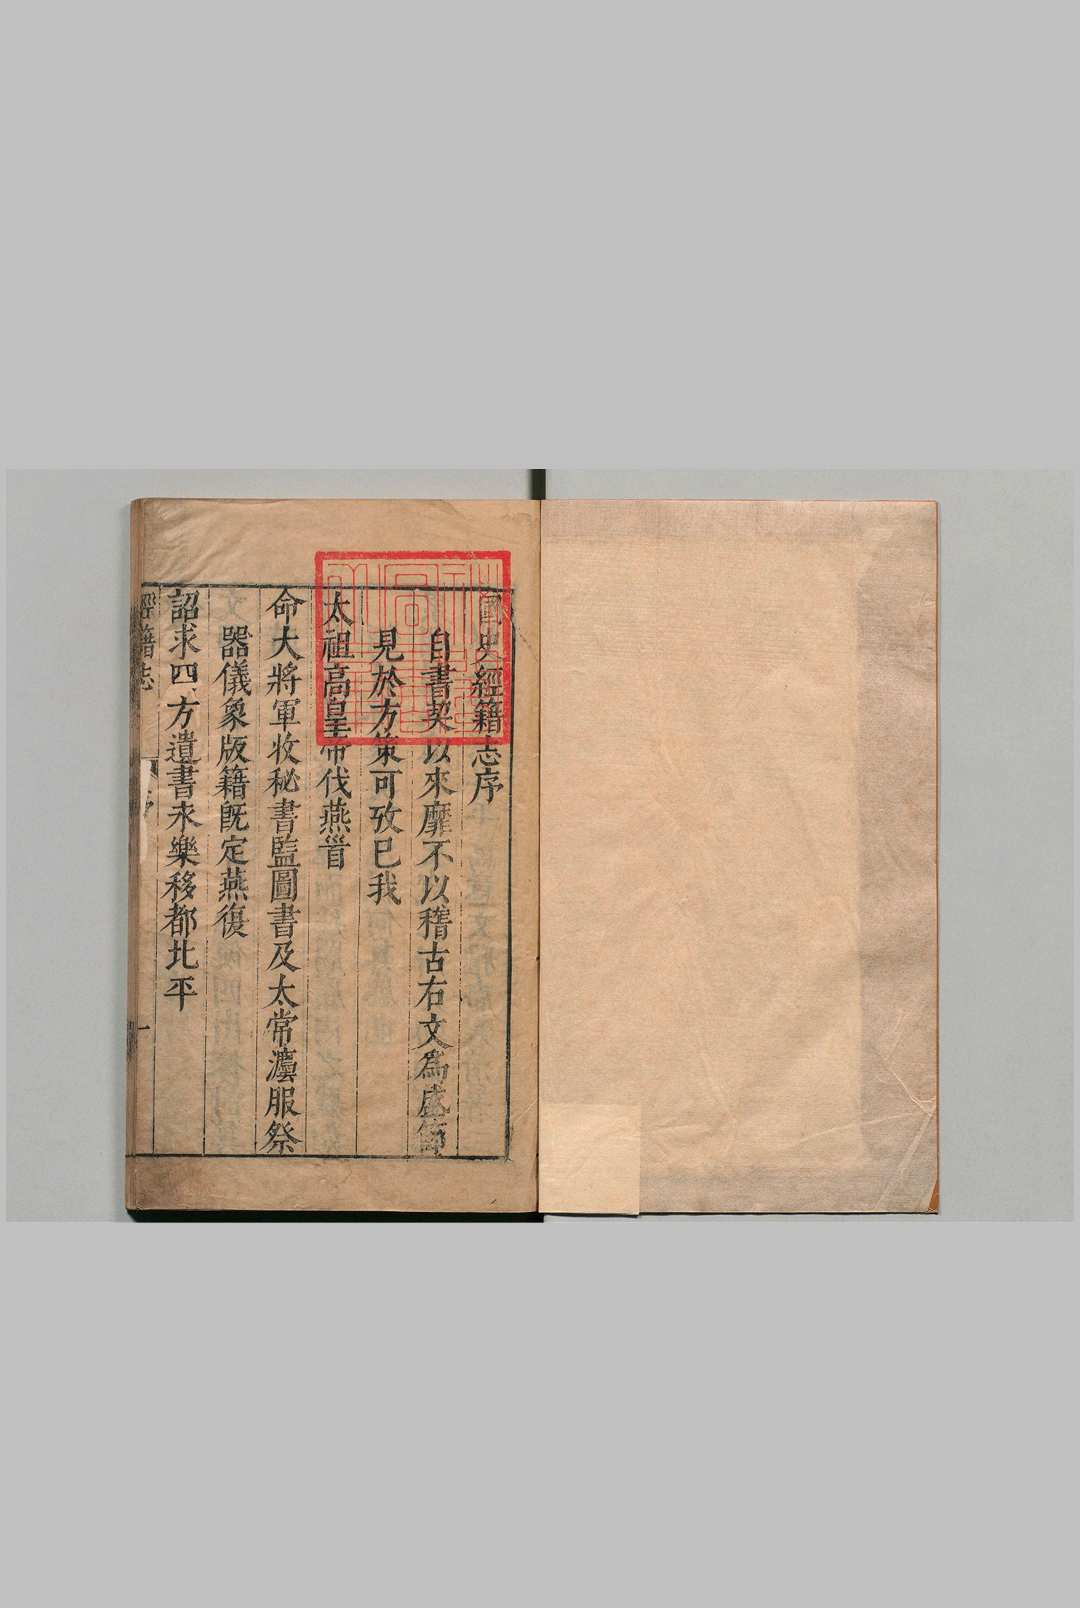 國史經籍志序
自書契以來靡不以稽古右文為盛節
見於方策可攷已我
太祖高皇帝伐燕首
命大將軍收秘書監圖書及太常瀍服祭
器儀象版籍旣定燕復
詔求四方遺書永樂移都北平
經籍志
序
一